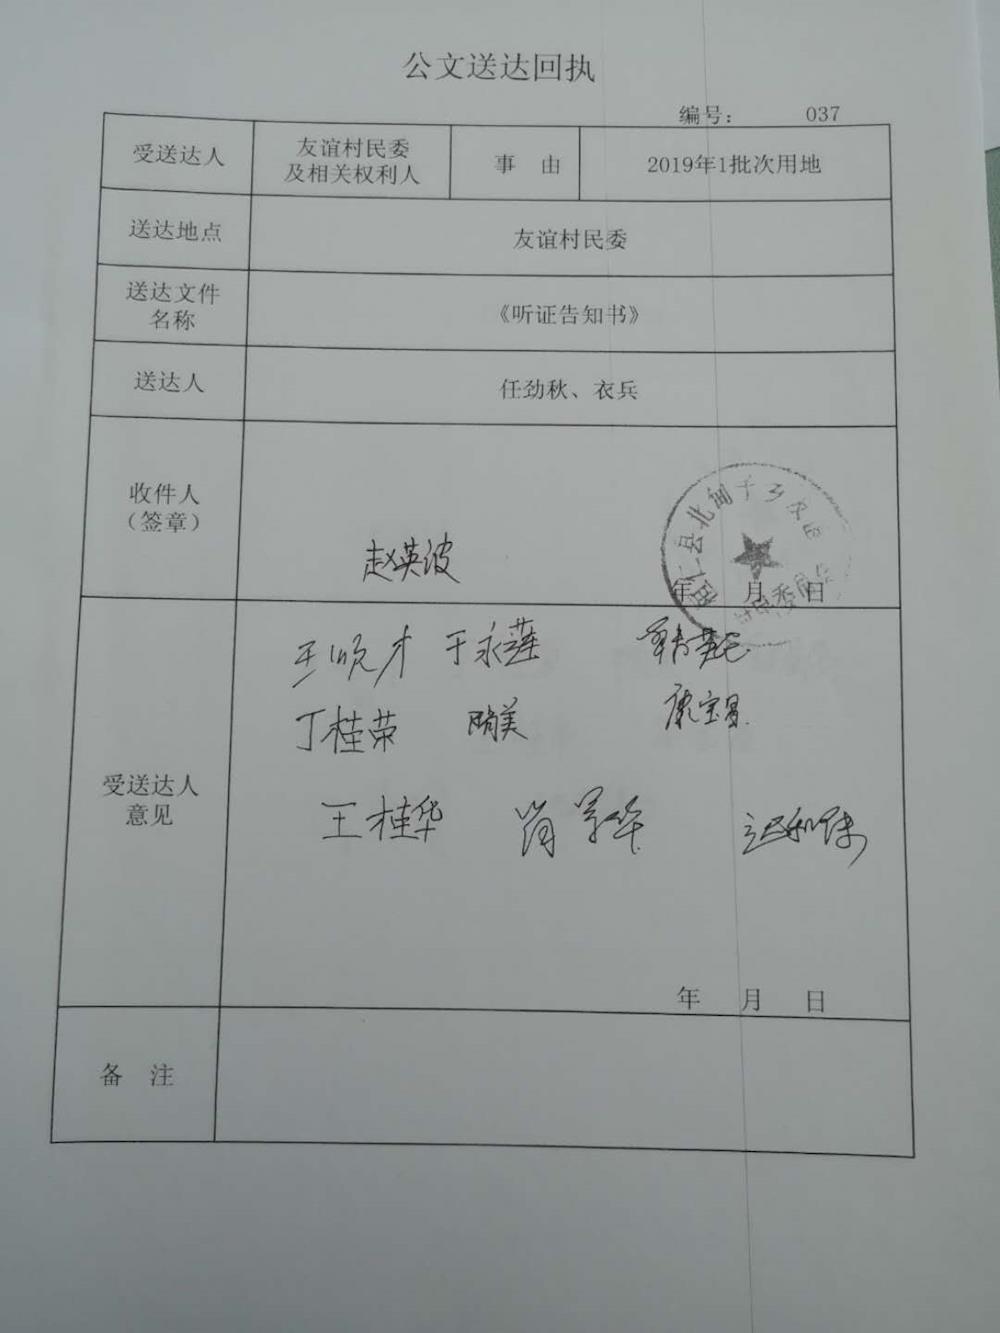 公文送达回执
编号： 037
受送达人 友谊村民委及相关权利人 事 由 2019年1批次用地
送达地点 友谊村民委
送达文件名称 《听证告知书》
送达人 任劲秋、衣兵
收件人（签章）
赵英波
县北甸子乡
年 月 日
王顺才 于永莲
丁桂荣 康宝昌
受送达人意见
王桂华
年 月 日
备 注